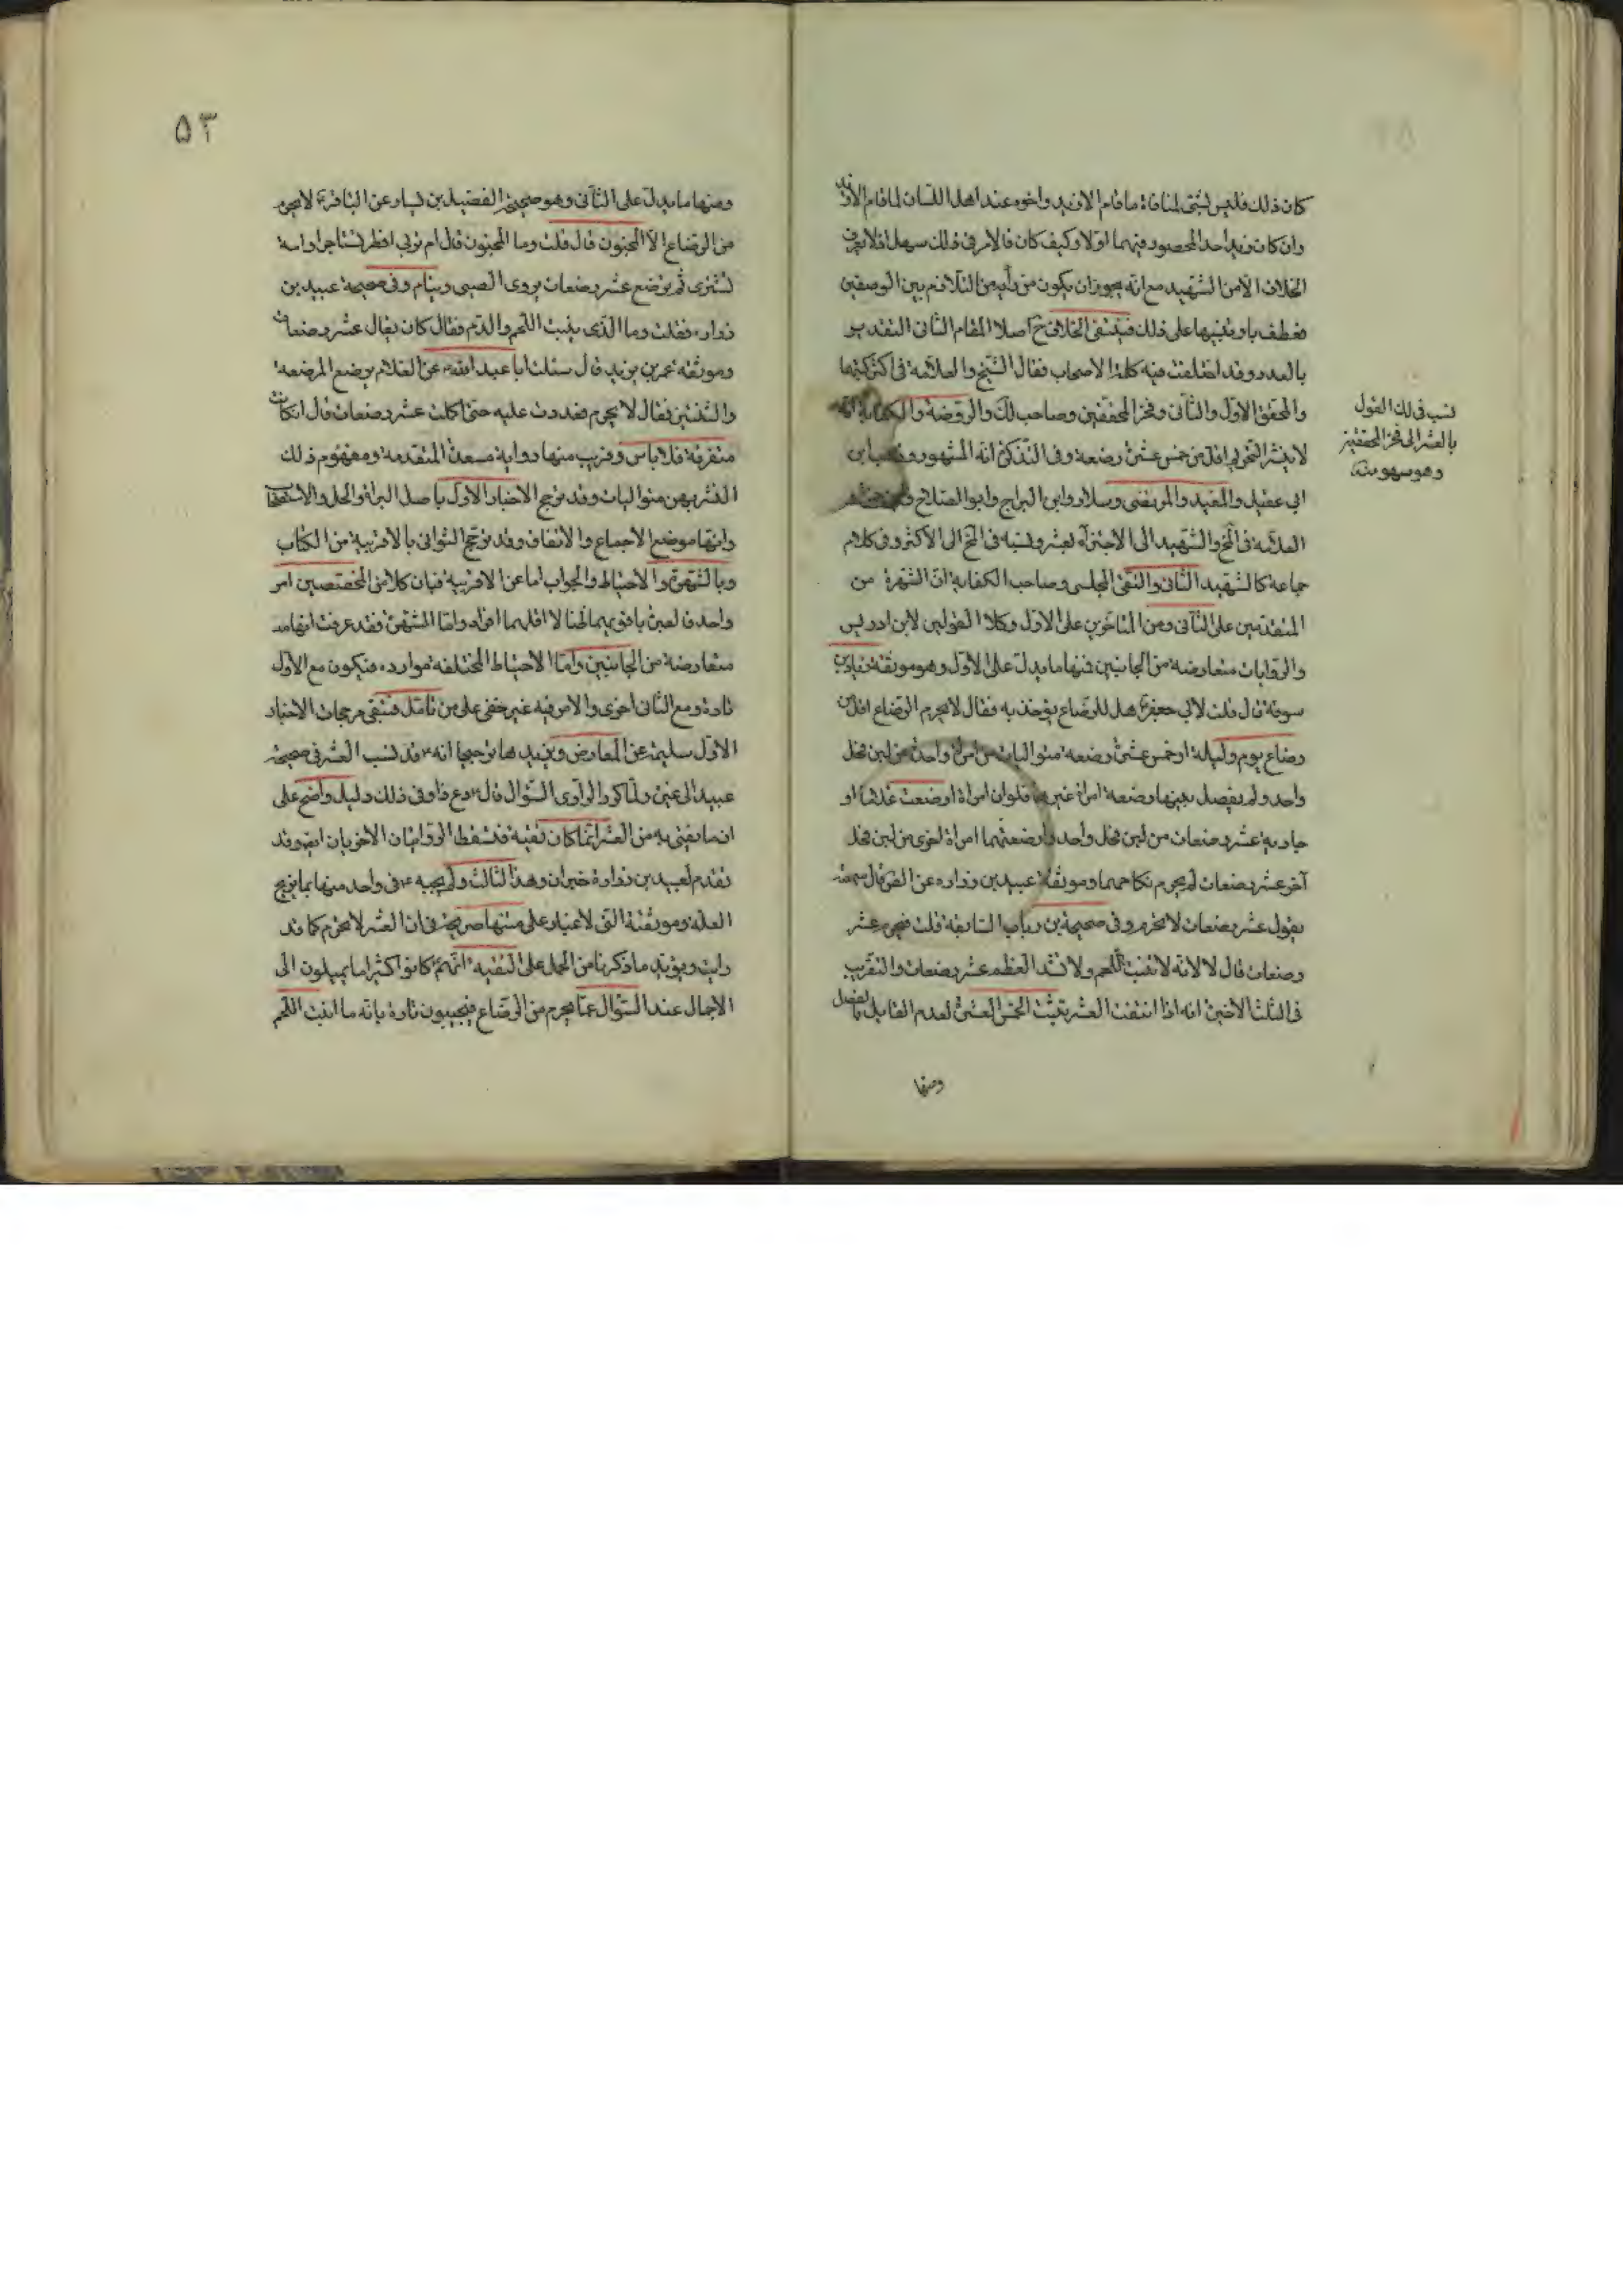 كان ذلك فليس لشئ لمنافاة ما قام الا زيد واخوه عند اهل اللسان لما قام الا زيد
وان كان زيد احد المحصور فيهما اولا وكيف كان فالامر في ذلك سهل اذ لا يعرف
الخلاف الا من الشهيد مع انه يجوز ان يكون من رأيه من التلازم بين الوصفين
فعطف باو تنبيها على ذلك فينتفى الخلاف ح اصلا المقام الثانى التقدير
بالعدد وقد اختلفت فيه كلمة الاصحاب فقال الشيخ والعلامة في اكثر كتبهما
والمحقق الاول والثانى وفخر المحققين وصاحب لك والروضة والكفاية انه
لا ينشر التحريم اقل من خمس عشرة رضعة وفى التذكرة انه المشهور وذهب ابن
ابى عقيل والمفيد والمرتضى وسلار وابن البراج وابو الصلاح وابن حمزة
العلامة فى لخ والشهيد الى الاجتزاء بعشر ونسبه فى لخ الى الاكثر وفى كلام
جماعة كالشهيد الثانى والتقى المجلسى وصاحب الكفاية ان الشهرة من
المتقدمين على الثانى ومن المتاخرين على الاول وكلا القولين لابن ادريس
والروايات متعارضة من الجانبين فمنها ما يدل على الاول وهو موثقة زياد بن
سوقة قال قلت لابى جعفر ع هل للرضاع يؤخذ به فقال لا يحرم الرضاع اقل من
رضاع يوم وليلة او خمس عشرة رضعة متواليات من امراة واحدة من لبن فحل
واحد ولم يفصل بينها رضعة امراة غيرها فلو ان امراة ارضعت غلاما او
جارية عشر رضعات من لبن فحل واحد وارضعتهما امراة اخرى من لبن فحل
آخر عشر رضعات لم يحرم نكاحهما وموثقة عبيد بن زراره عن الص قال سمعته
يقول عشر رضعات لا تحرم وفى صحيحة بن رياب السابقة قلت فيحرم عشر
رضعات قال لا لانه لا تنبت اللحم ولا تشد العظم عشر رضعات والتقريب
فى الثلث الاخيرة انه اذا انتفت العشر يثبت الخمس العشرة لعدم القايل بالفصل
ومنها
نسب فى لك القول
بالعشر الى فخر المحققين
وهو سهو منه
٥٣
ومنها ما يدل على الثانى وهو صحيحة الفضيل بن يسار عن الباقر ع لا يحرم
من الرضاع الا المجبور قال قلت وما المجبور قال ام تربى او ظئر تستاجر او امة
تشترى ثم ترضع عشر رضعات يروى الصبى وينام وفى صحيحة عبيد بن
زراره فقلت وما الذى ينبت اللحم والدم فقال كان يقال عشر رضعات
وموثقة عمر بن يزيد قال سئلت ابا عبد الله ع عن الغلام يرضع الرضعة
والثنتين فقال لا يحرم فعددت عليه حتى اكملت عشر رضعات قال اذا كانت
متفرقة فلا باس وقريب منها رواية مسعدة المتقدمة ومفهوم ذلك
النشر بهن متواليات وقد ترجح الاخبار الاول باصل البراة والحل والاستصحاب
وانها موضع الاجماع والاتفاق وقد ترجح الثوانى بالاقربية من الكتاب
وبالشهرة والاحتياط والجواب اما عن الاقربية فبان كلا من المخصصين امر
واحد فالعبرة باقويهما لهنا لا اقلهما افراد واما الشهرة فقد عرفت انها مد
متعارضة من الجانبين واما الاحتياط المختلفة موارده فيكون مع الاول
تارة ومع الثانى اخرى والامر فيه غير خفى على من تامل فتبقى مرجحات الاخبار
الاول سليمة عن المعارض ويزيدها ترجيحا انه ع قد نسب العشر فى صحيحة
عبيد الى غيره ولما كرر الراوى السؤال قال ع دع ذا وفى ذلك دليل واضح على
ان ما يفتى به من العشر انما كان تقية فتسقط الروايتان الاخريان ايضا وقد
تقدم لعبيد بن زرارة خبران وهذا الثالث ولم يجبه ع فى واحد منها بما يزيح
العلة وموثقتة التى لا غبار على متنها صريحة فى ان العشر لا تحرم كما قد
رايت ويؤيد ما ذكرنا من الحمل على التقية انهم ع كانوا كثيرا ما يميلون الى
الاجمال عند السؤال عما يحرم من الرضاع فيجيبون تارة بانه ما انبت اللحم